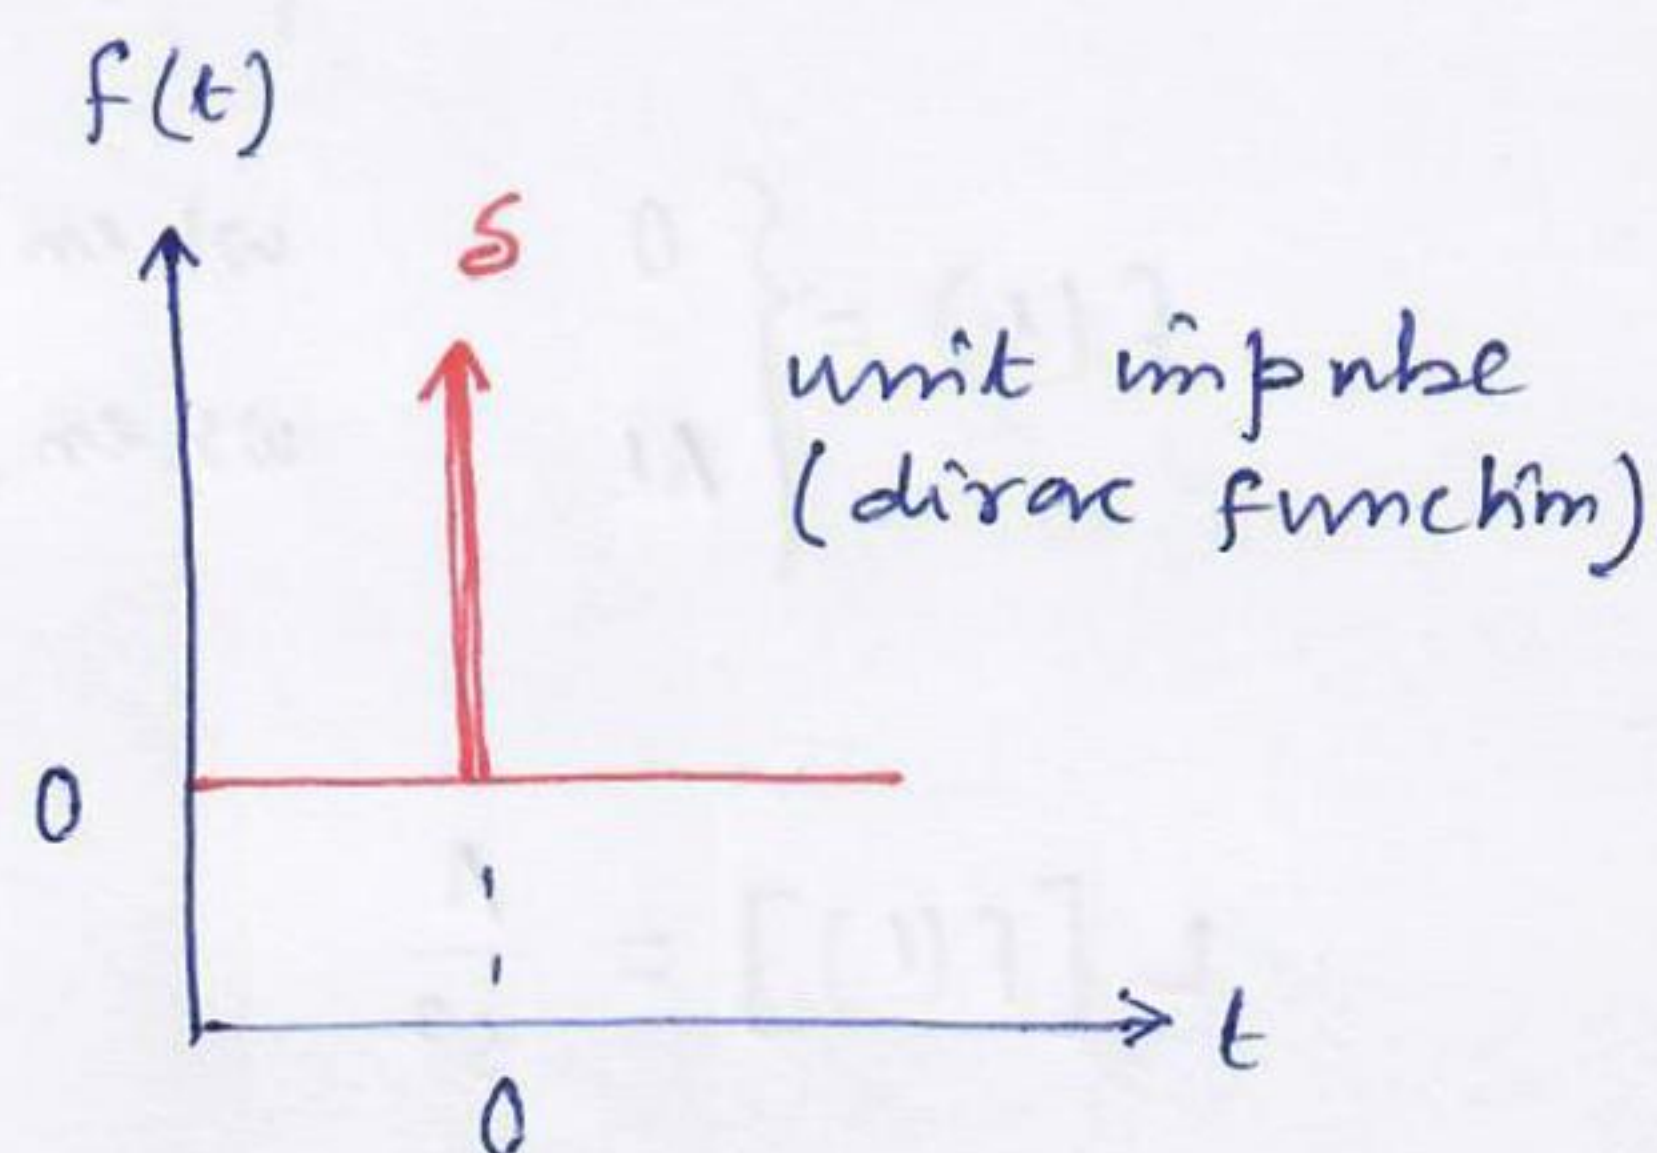 f(t)
δ
unit impulse
(dirac function)
0
t
0